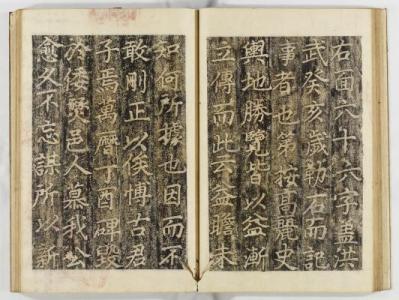 右面六十六字蓋洪
武癸亥歲勒石而記
事者也第按高麗史
輿地勝覽皆以益漸
立傳而此云益瞻未
如何所據也因而不
敢剛正以俟博古君
子焉萬曆丁酉碑毀
於倭燹邑人慕我公
愈久不忘謀所以新